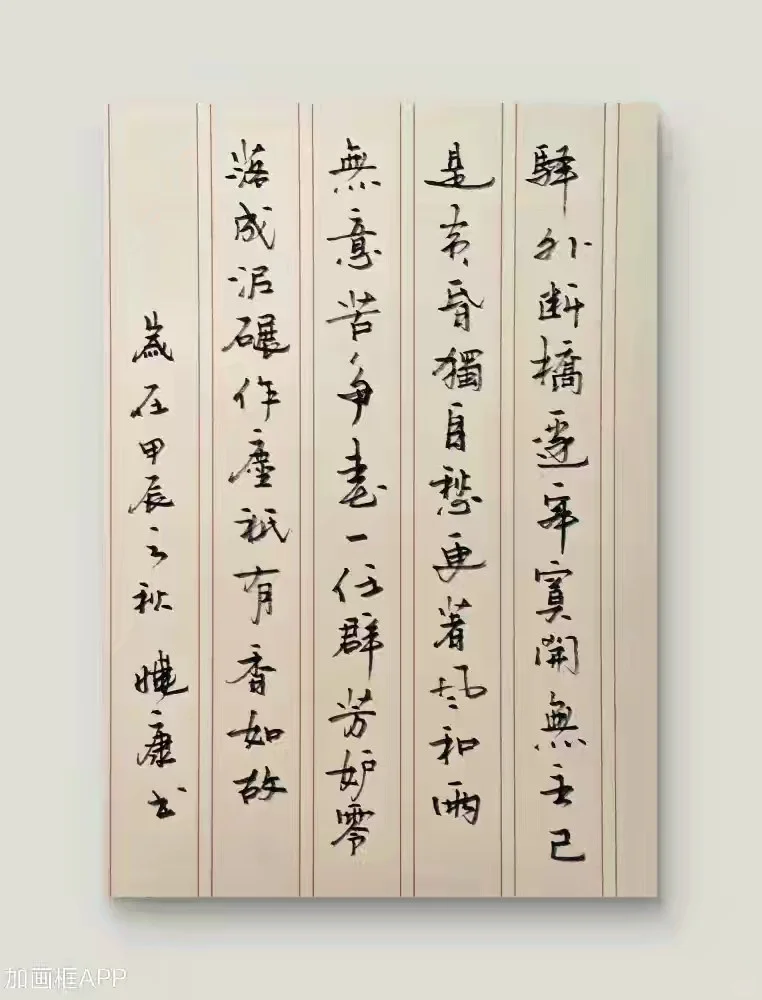 驛外斷橋邊寂寞開無主已
是黃昏獨自愁更著風和雨
無意苦爭春一任群芳妒零
落成泥碾作塵祇有香如故
歲在甲辰之秋 康書
加画框APP